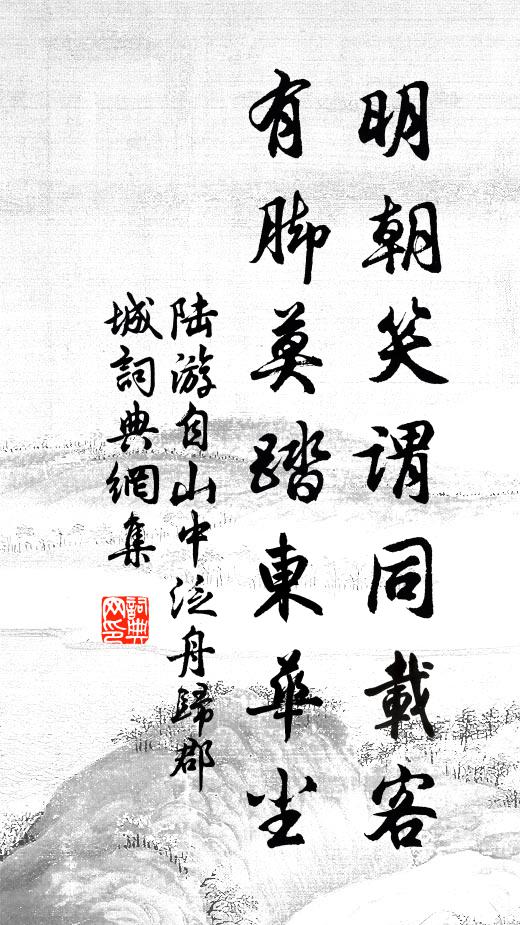 明朝笑謂同載客
有脚莫踏東華尘
陆游自山中泛舟歸郡
城詞典網集
詞典